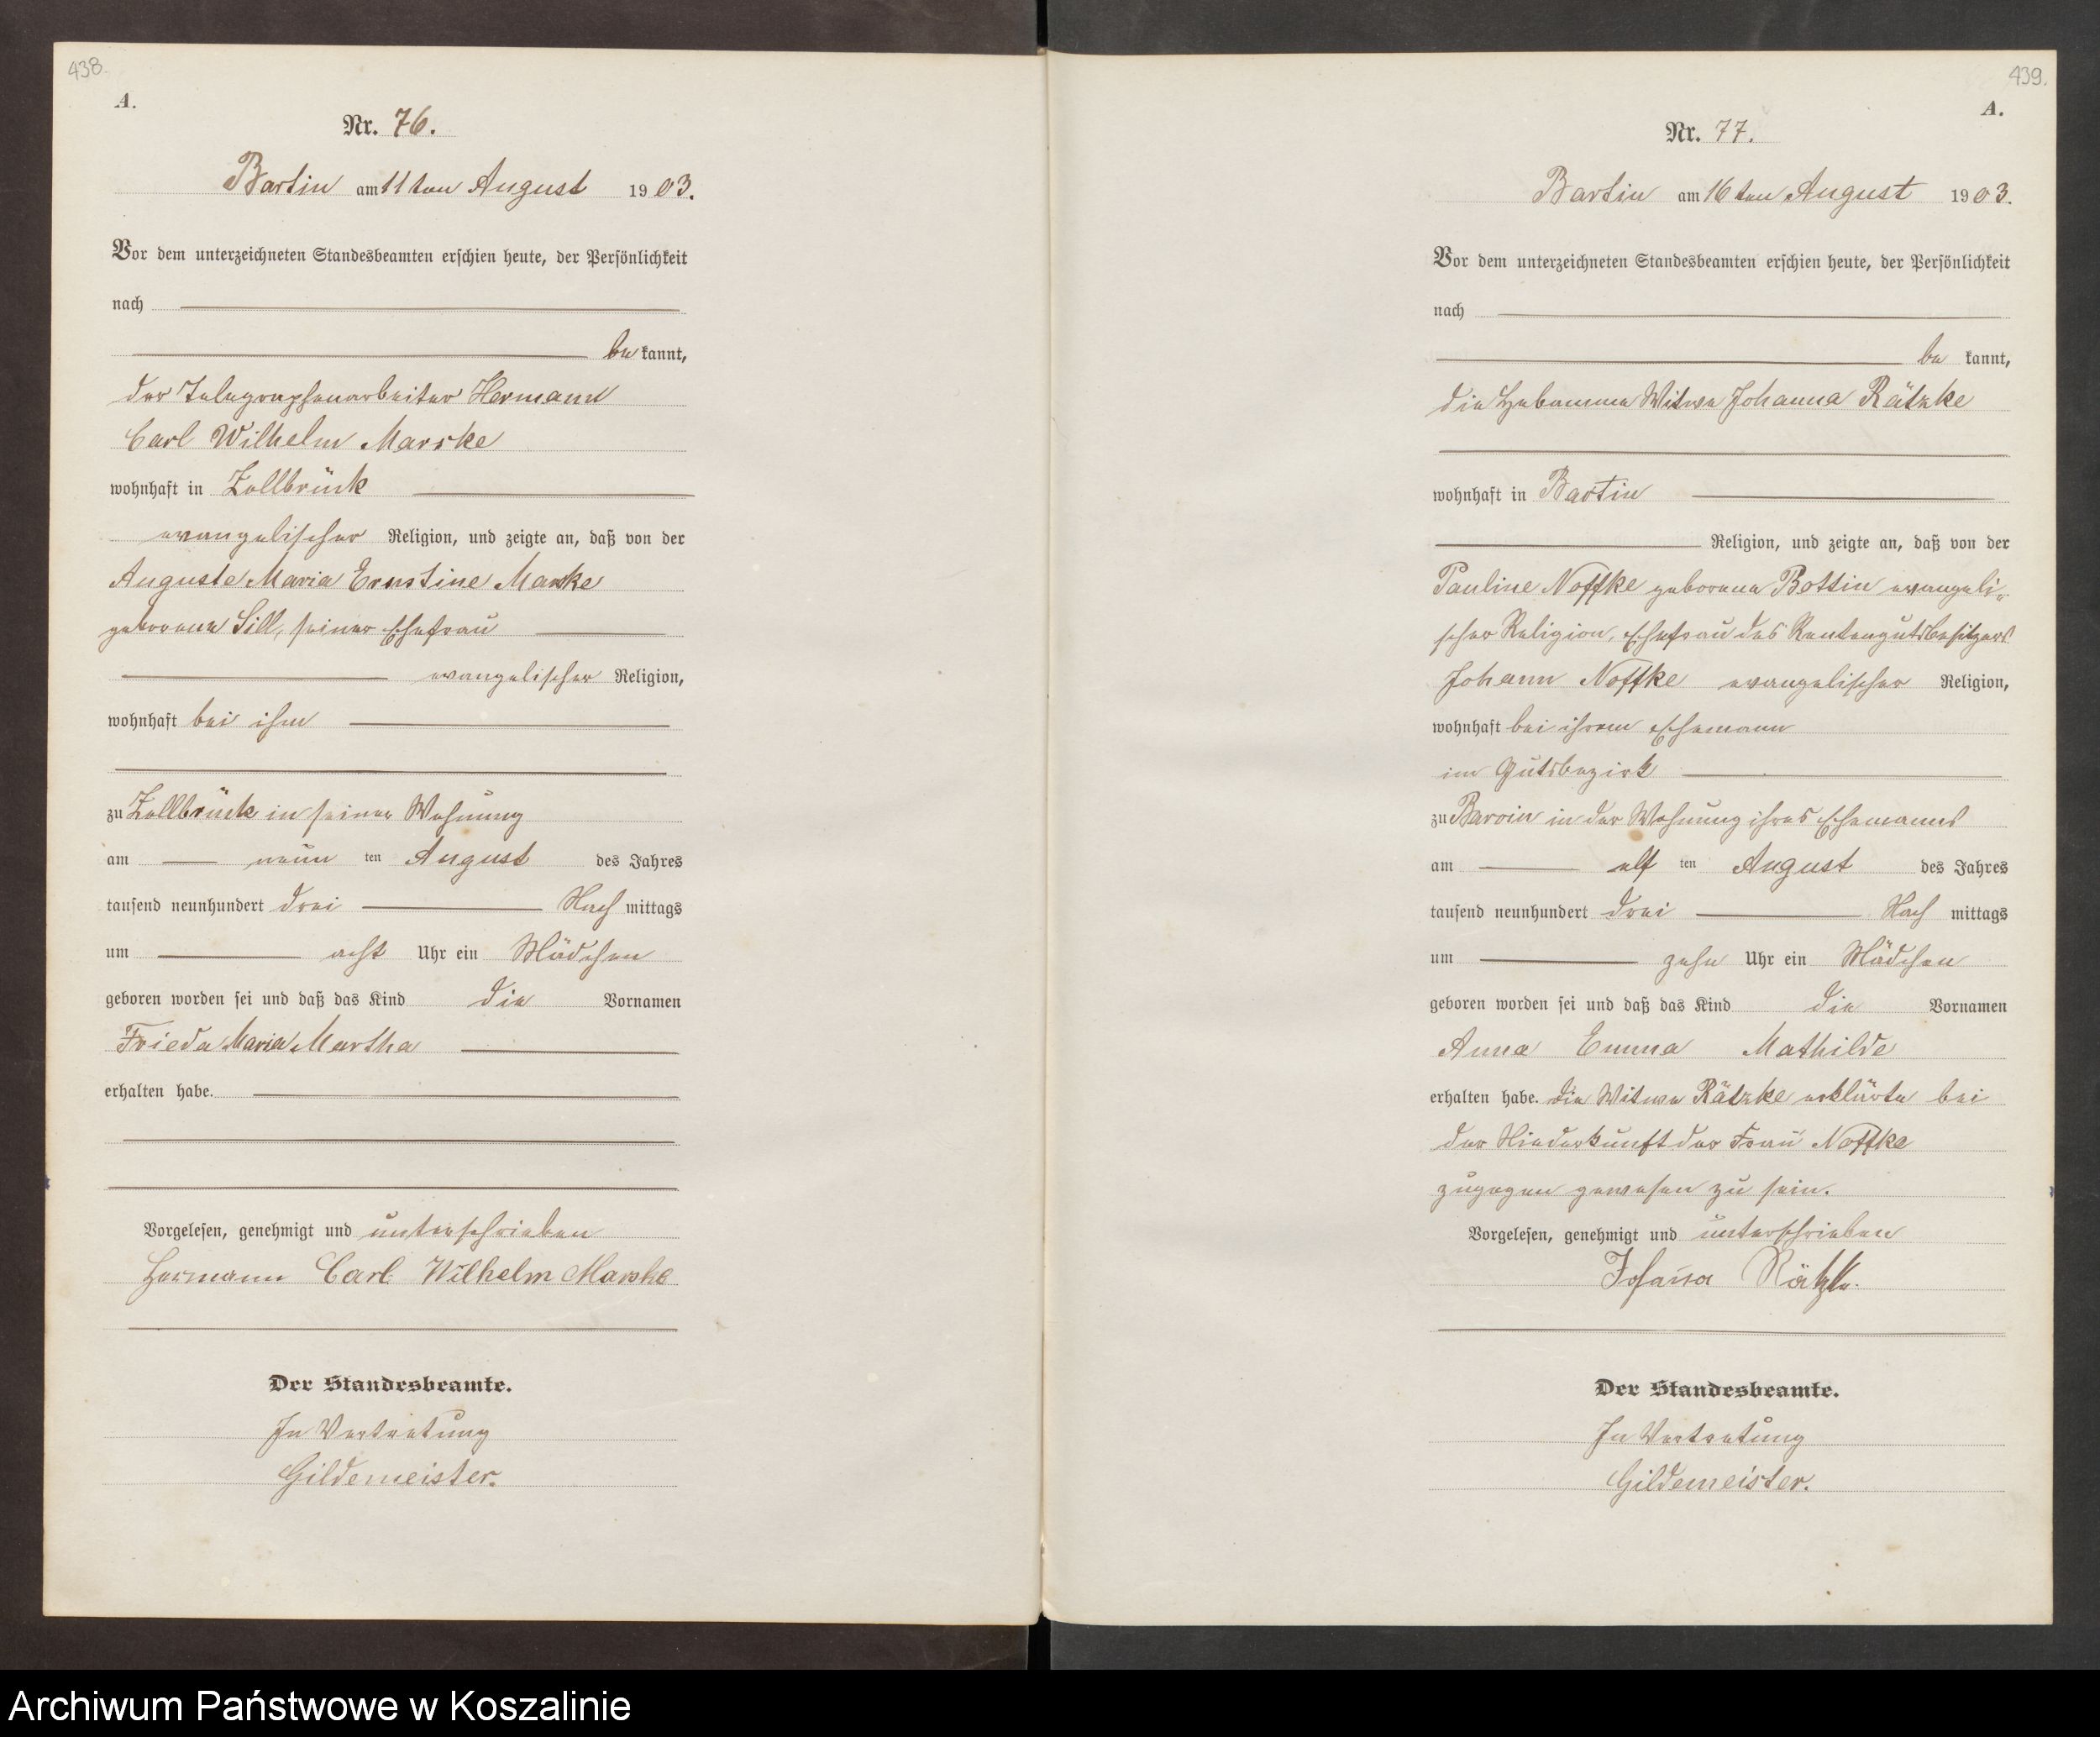 438.
A.
Nr. 76.
Bartin am 11ten August 1903.
Vor dem unterzeichneten Standesbeamten erschien heute, der Persönlichkeit
nach
be kannt,
der Telegraphenarbeiter Hermann
Carl Wilhelm Marske
wohnhaft in Zollbrück
evangelischer Religion, und zeigte an, daß von der
Auguste Maria Ernstine Marske
geborene Sill, seiner Ehefrau
evangelischer Religion,
wohnhaft bei ihm
zu Zollbrück in seiner Wohnung
am neun ten August des Jahres
tausend neunhundert drei Nach mittags
um acht Uhr ein Mädchen
geboren worden sei und daß das Kind die Vornamen
Frieda Maria Martha
erhalten habe.
Vorgelesen, genehmigt und unterschrieben
Hermann Carl Wilhelm Marske
Der Standesbeamte.
In Vertretung
Gildemeister.
439.
A.
Nr. 77.
Bartin am 16ten August 1903.
Vor dem unterzeichneten Standesbeamten erschien heute, der Persönlichkeit
nach
be kannt,
die Hebamme Witwe Johanna Rätzke
wohnhaft in Bartin
Religion, und zeigte an, daß von der
Pauline Noffke geborene Bottin evangeli-
scher Religion, Ehefrau des Rentengutsbesitzers
Johann Noffke evangelischer Religion,
wohnhaft bei ihrem Ehemann
im Gutsbezirk
zu Barvin in der Wohnung ihres Ehemanns
am elf ten August des Jahres
tausend neunhundert drei Nach mittags
um zehn Uhr ein Mädchen
geboren worden sei und daß das Kind die Vornamen
Anna Emma Mathilde
erhalten habe. Die Witwe Rätzke erklärte bei
der Niederkunft der Frau Noffke
zugegen gewesen zu sein.
Vorgelesen, genehmigt und unterschrieben
Johanna Rätzke.
Der Standesbeamte.
In Vertretung
Gildemeister.
Archiwum Państwowe w Koszalinie